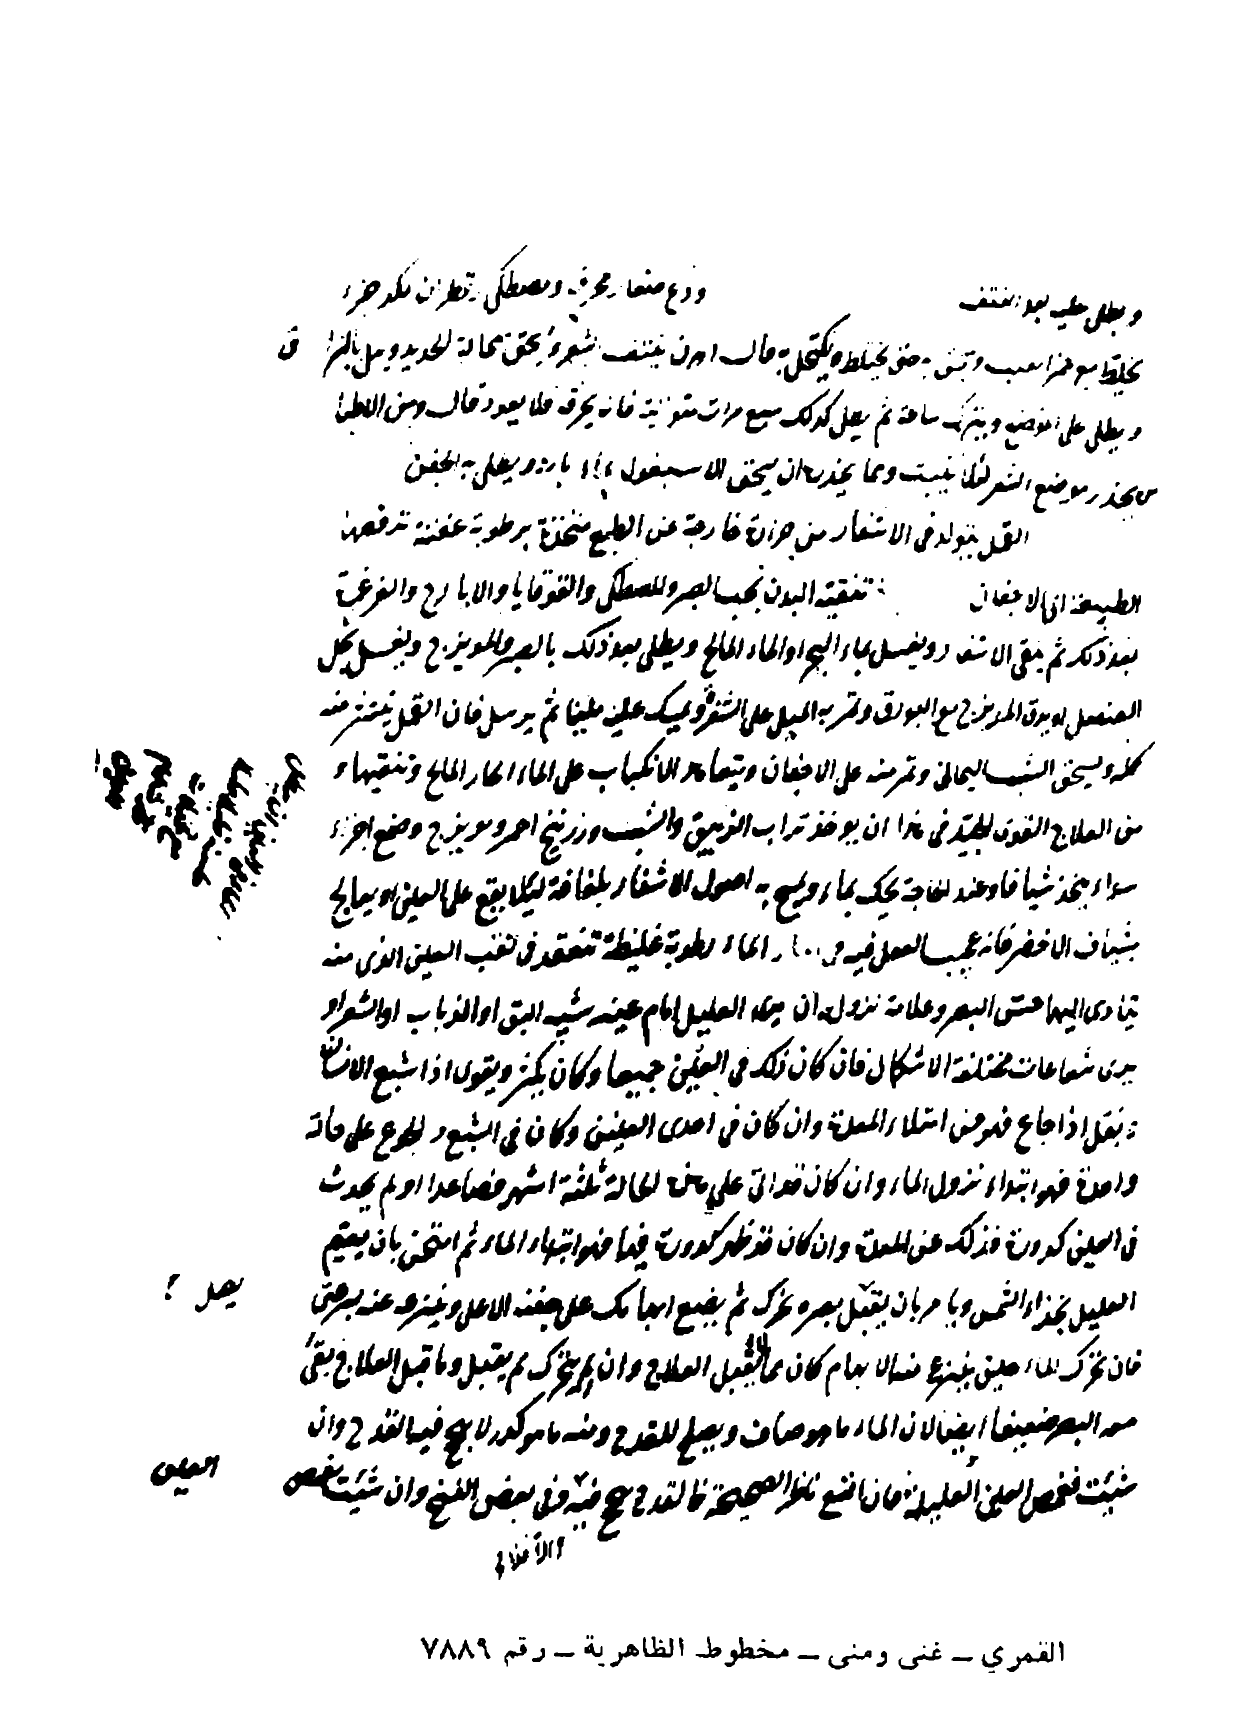 ويطلى عليه بعد النتف ودع صغار محرق ومصطكى وقطران مكد جزء
يخلط مع خمر العنب حتى يختلط ويكتحل به قال اهرن ينتف الشعر
ويطلى على الموضع ويترك ساعة ثم يعمل كذلك سبع مرات متوالية فانه يحرقه فلا يعود قال ومن الاطبا
من يخدر موضع الشعر لئلا ينبت ومما يخدره ان يسحق الاسبغول بارد ويطلى به الجفن
القمل يتولد في الاشفار من حرارة خارجة عن الطبع متخذة برطوبة عفنة تدفعها
الطبيعة الى الاجفان تنقية البدن بحب الصبر والمصطكى والقوقايا والايارج والغرغرة
بعد ذلك ثم ينقى الاشفار ويغسل بماء البحر او الماء المالح ويطلى بعد ذلك بالصبر والمويزج ويغسل بخل
العنصل او يدق المويزج مع البورق وتمر به الميل على الشفر ويمسك عليه مليا ثم يرسل فان القمل ينتثر منه
كله ويسحق الشب اليماني وتمر منه على الاجفان ويتعاهد الانكباب على الماء الحار المالح وتنقيتها و
من العلاج القوي الجيد في هذا ان يوخذ تراب الزيبق والشب وزرنيخ احمر ومويزج وضع اجزاء
سواء يتخذ شيافا وعند الحاجة يحك بماء ويمسح به اصول الاشفار بلفافة ليلا يقع على العين او يعالج
بشياف الاخضر فانه عجيب الفعل فيه الماء رطوبة غليظة تنعقد في ثقب العين الذي منه
يتادى اليها حس البصر وعلامة نزوله ان يرى العليل امام عينه شبه البق او الذباب او الشعر او
يرى شعاعات مختلفة الاشكال فان كان ذلك في العينين جميعا وكان يكثر ويقوى اذا شبع الانسان
ويقل اذا جاع فهو من امتلاء المعدة وان كان في احدى العينين وكان في الشبع والجوع على حالة
واحدة فهو ابتداء نزول الماء وان كان قد اتى على هذه الحالة ثلثة اشهر فصاعدا او لم يحدث
في العين كدورة فذلك عن المعدة وان كان قد ظهر كدورة فيها فهو ابتداء الماء ثم امتحن بان يقيم
العليل بحذاء الشمس ويامر بان يقبل بصره نحوك ثم يضع ابهامك على جفنه الاعلى وينزعه عنه بسرعة حتى
فان تحرك الماء حين ينزع عنه الابهام كان مما يقبل العلاج وان لم يتحرك لم يقبل وما قبل العلاج بقى
معه البصر ضعيفا ايضا لان الماء ما هو صاف ويصلح للقدح ومنه ما هو كدر لا ينجح فيه القدح وان
شئت فغمص العين العليلة فان اتسع ناظر الصحيحة فالقدح ينجح فيه وفي بعض النسخ وان شئت فغمص
العين
يصل ؟
والا فلا
القمري – غنى ومنى – مخطوط الظاهرية – رقم ٧٨٨٩